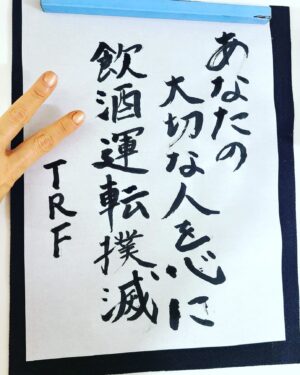 あなたの
大切な人を心に
飲酒運転撲滅
TRF